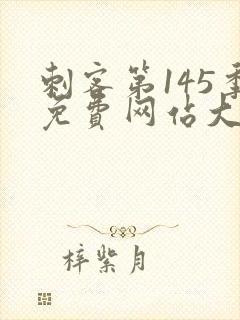 刺客第145季
免费网估大
梓紫月